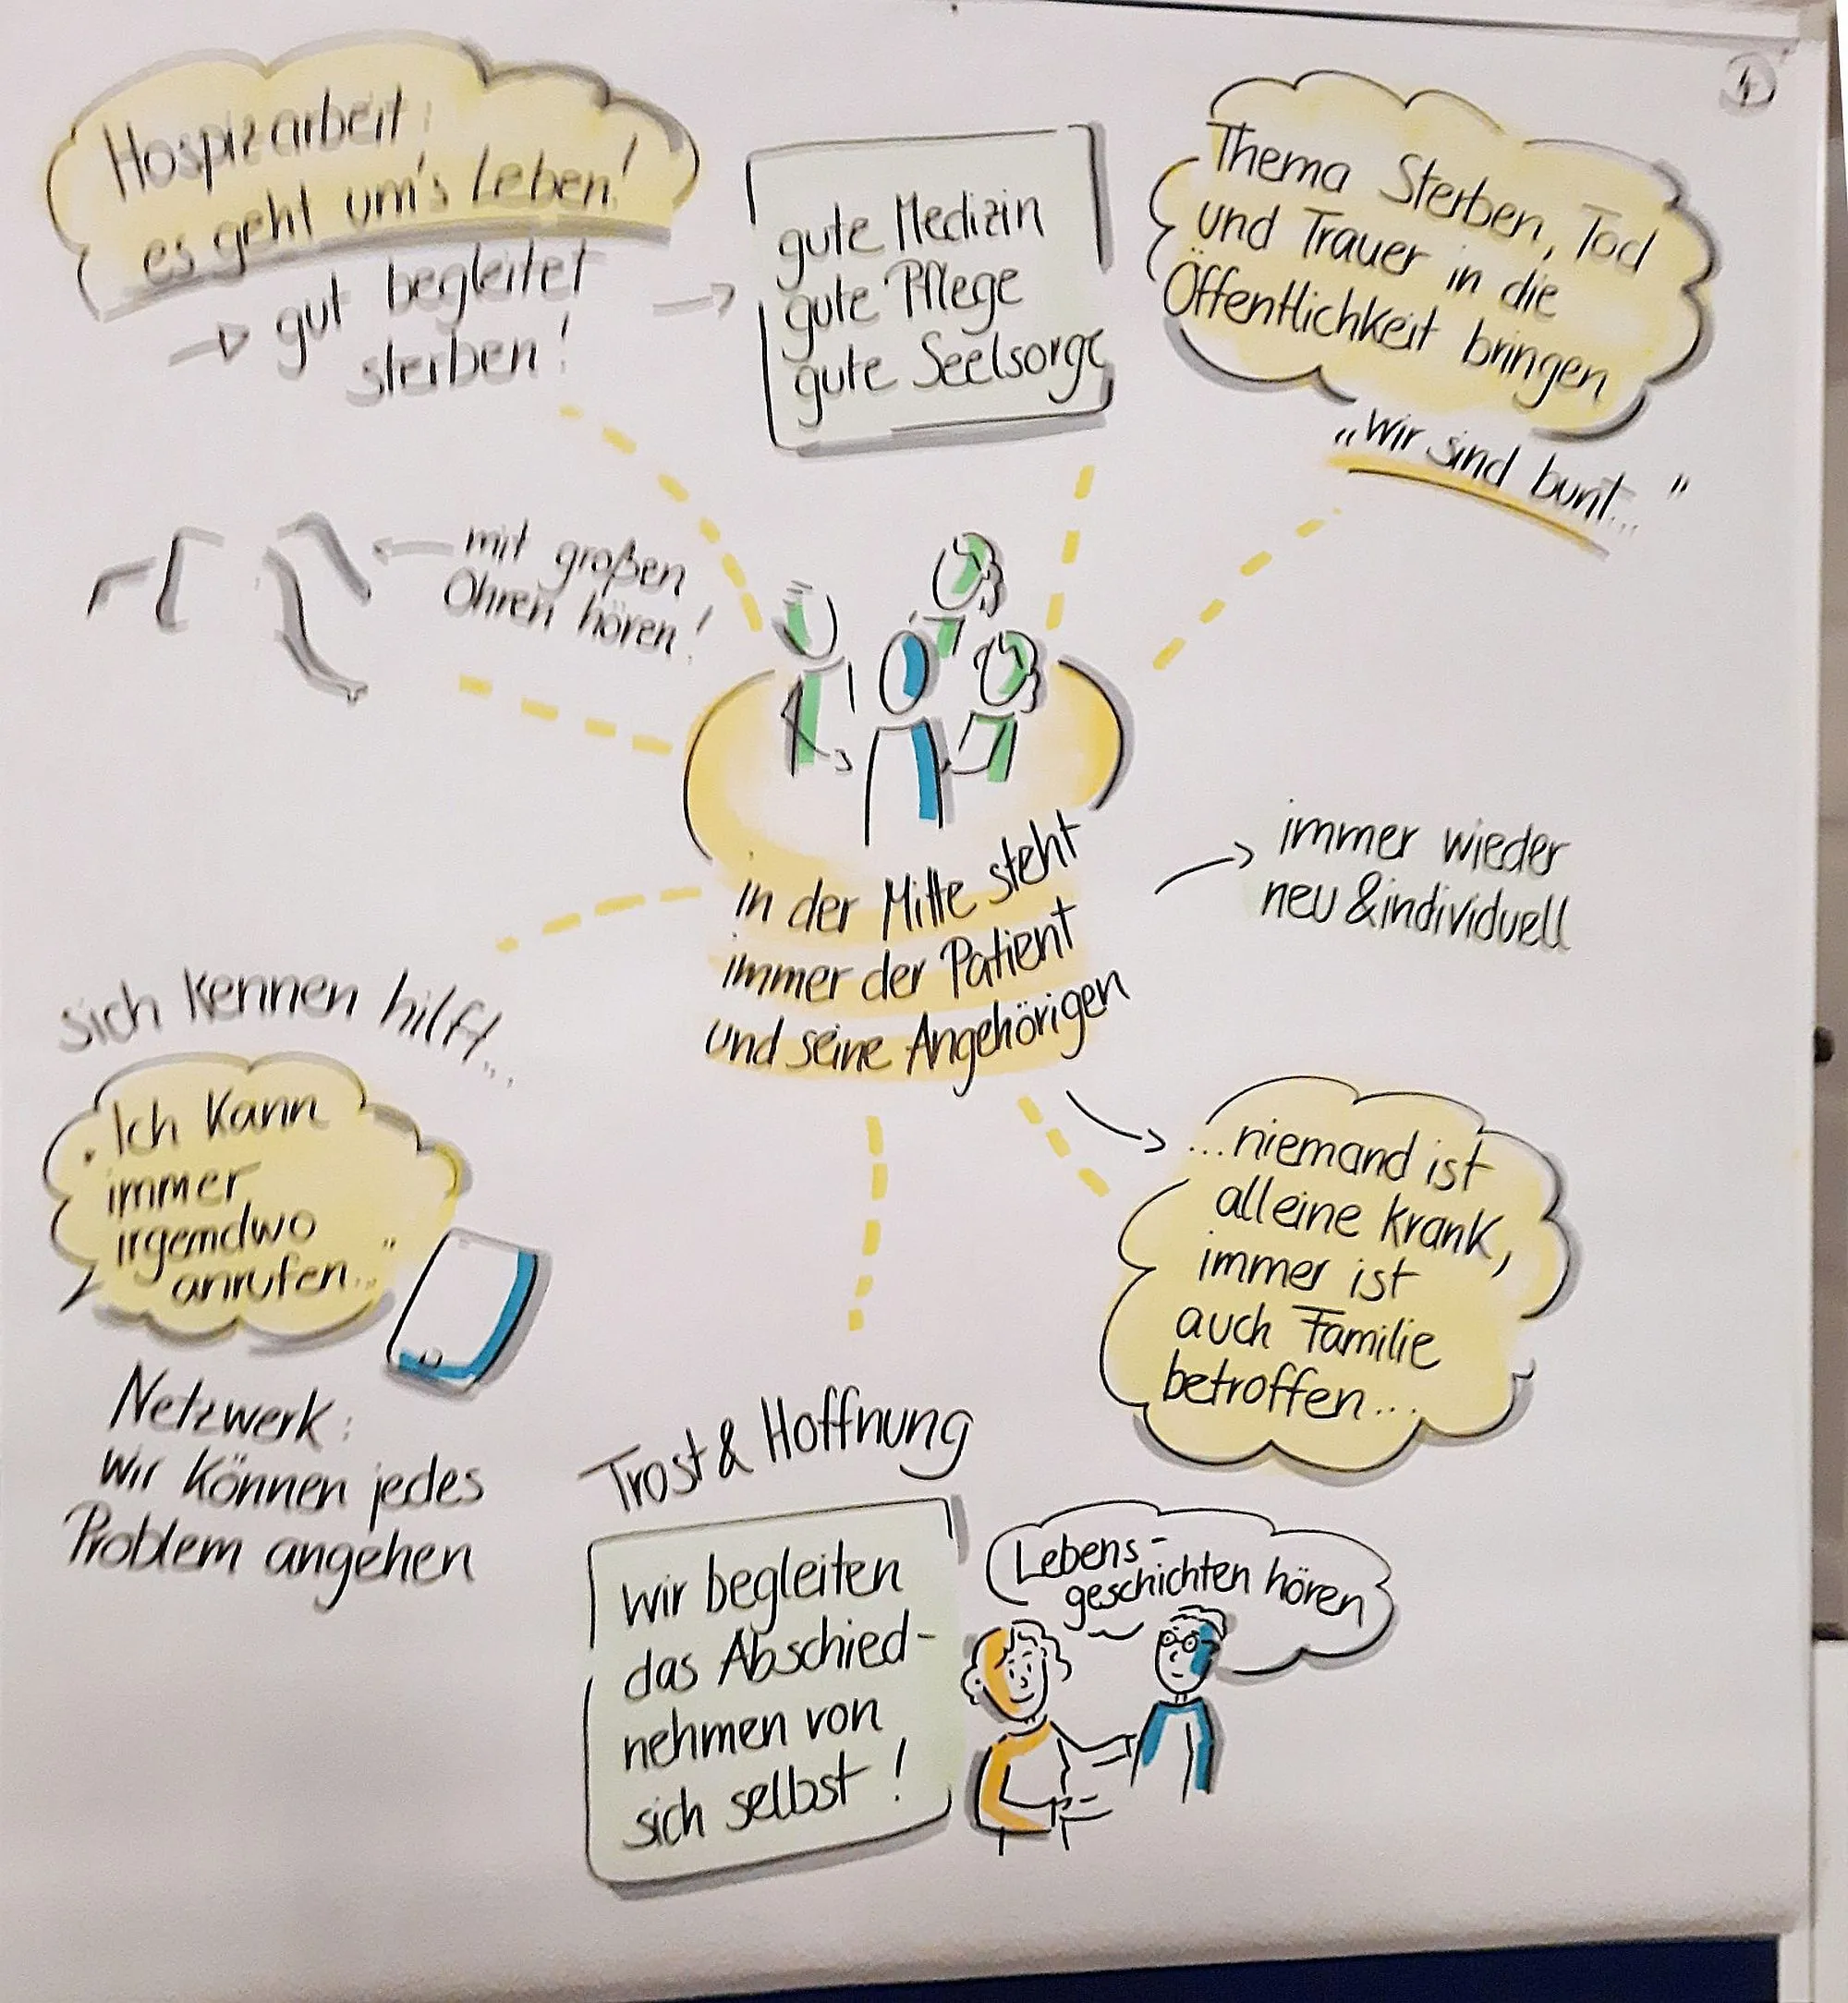 Hospizarbeit:
es geht um's Leben!
gut begleitet
sterben!
gute Medizin
gute Pflege
gute Seelsorge
Thema Sterben, Tod
und Trauer in die
Öffentlichkeit bringen
„Wir sind bunt..."
mit großen
Ohren hören!
in der Mitte steht
immer der Patient
und seine Angehörigen
immer wieder
neu & individuell
sich kennen hilft...
„Ich kann
immer
irgendwo
anrufen..."
Netzwerk:
Wir können jedes
Problem angehen
...niemand ist
alleine krank,
immer ist
auch Familie
betroffen...
Trost & Hoffnung
wir begleiten
das Abschied-
nehmen von
sich selbst!
Lebens-
geschichten hören